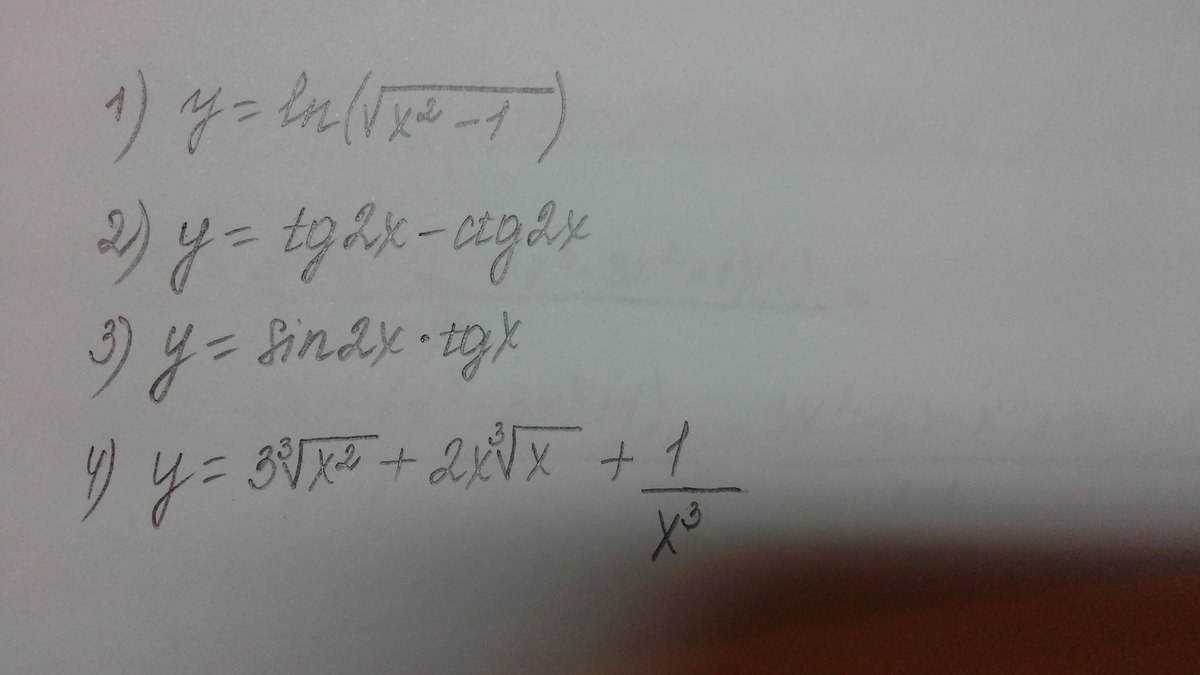 1) y = ln(√(x² - 1))
2) y = tg2x - ctg2x
3) y = sin2x · tgx
4) y = 3∛(x²) + 2x∛x + 1/x³